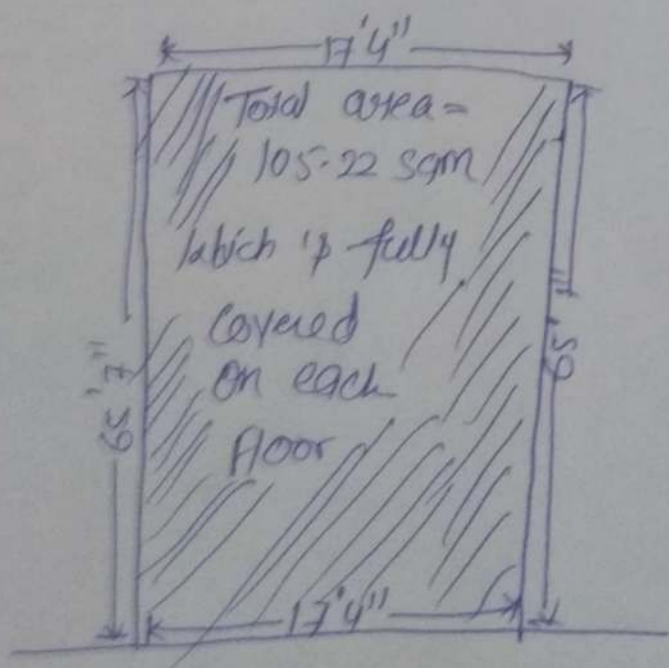 17'4"
Total area =
105.22 sqm
which is fully
covered
on each
floor
65'7"
17'4"